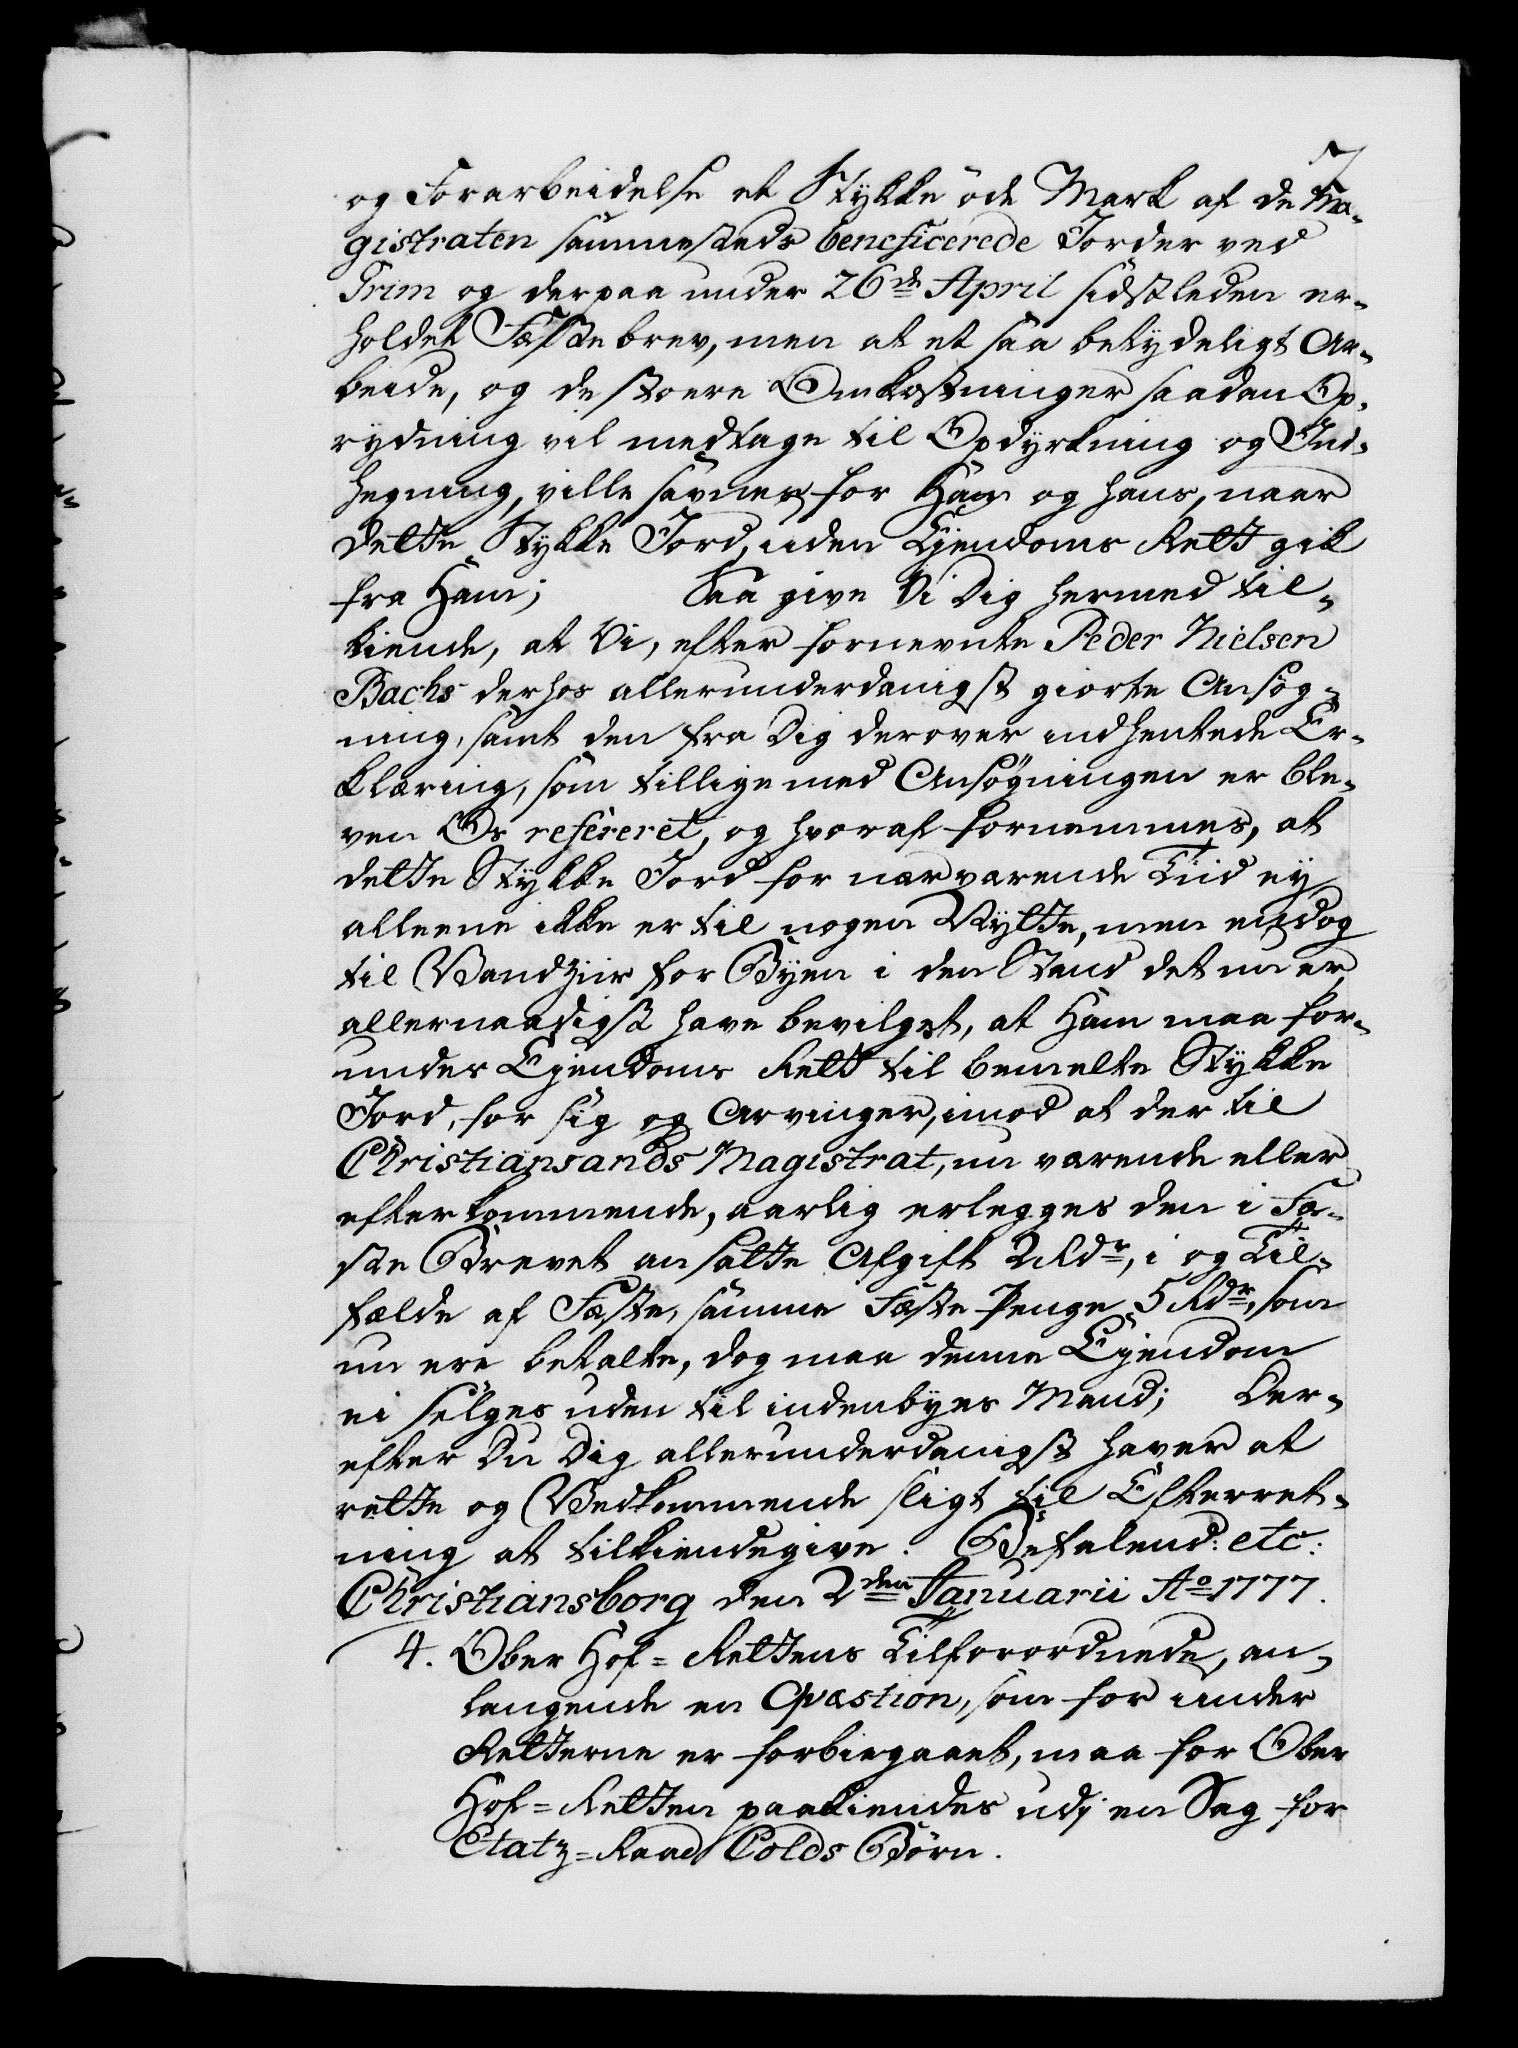 7
og Forarbeidelse et Stykke öde Mark af de Ma-
gistraten sammesteds beneficerede Jorder ved
Trim og derpaa under 26de April sidstleden er-
holdet Fæstebrev, men at et saa betydeligt Ar-
beide, og de stoere Omkostninger saadan Op-
rydning vil medtage til Opdyrkning og Ind-
hegning, ville savnes for Ham og hans, naar
dette Stykke Jord, uden Ejendoms Rett gik
fra Ham; Saa give Vi Dig hermed til-
kiende, at Vi, efter fornevnte Peder Nielsen
Bachs derhos allerunderdanigst giorte Ansög-
ning, samt den fra Dig derover indhentede Er-
klæring, som tillige med Ansögningen er ble-
ven Os refereret, og hvoraf fornemmes, at
dette Stykke Jord for nærværende Tiid ey
alleene ikke er til nogen Nytte, men endog
til Vandziir for Byen i den Stand det nu er,
allernaadigst have bevilget, at Ham maa for-
undes Ejendoms Rett til bemelte Stykke
Jord, for sig og Arvinger, imod at der til
Christiansands Magistrat, nu værende eller
efterkommende, aarlig erlegges den i Fæ-
ste Brevet ansatte Afgift 2 Rdr, i og Til-
fælde af Fæste, samme Fæste Penge 5 Rdr, som
nu ere betalte, dog maa denne Ejendom
ei sælges uden til indenbyes Mand; Der-
efter Du Dig allerunderdanigst haver at
rette og Vedkommende sligt til Efterret-
ning at tilkiendegive. Befalend: etc:
Christiansborg den 2den Januarii Ao 1777.
4. Ober Hof=Rettens Tilforordnede, an-
langende en Qvæstion, som for under
Retterne er forbiegaaet, maa for Ober
Hof=Retten paakiendes udj en Sag for
Etatz=Raad Colds Börn.